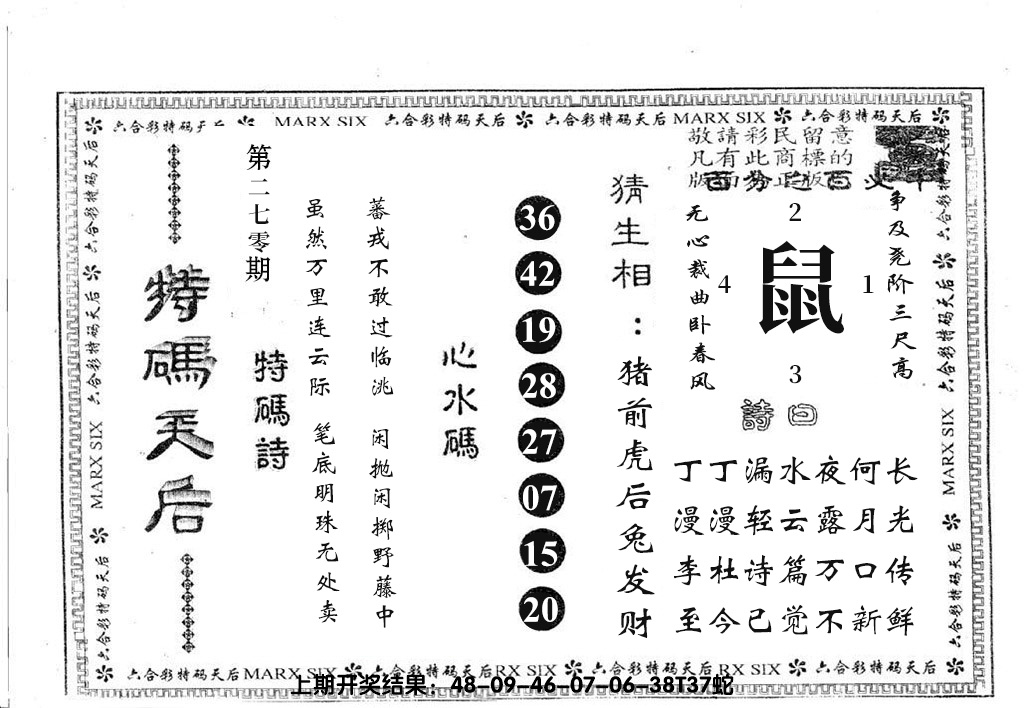 六合彩特码天后 MARX SIX 六合彩特码天后 六合彩特码天后 MARX SIX 六合彩特码天后
敬請彩民留意
凡有此商標的
版面為正版
第二七零期
特碼天后
特碼詩
虽然万里连云际
笔底明珠无处卖
蕃戎不敢过临洮
闲抛闲掷野藤中
心水碼
36
42
19
28
27
07
15
20
猜生相：猪前虎后兔发财
无心裁曲卧春风
2
4
鼠
1
3
争及尧阶三尺高
詩曰
丁丁漏水夜何长
漫漫轻云露月光
李杜诗篇万口传
至今已觉不新鲜
六合彩特码天后
MARX SIX
六合彩特码天后
六合彩特码天后
六合彩特码天后
六合彩特码天后
MARX SIX
六合彩特码天后
六合彩特码天后 MARX SIX 六合彩特码天后RX SIX 六合彩特码天后 RX SIX 六合彩特码天后
上期开奖结果：48-09-46-07-06-38T37蛇